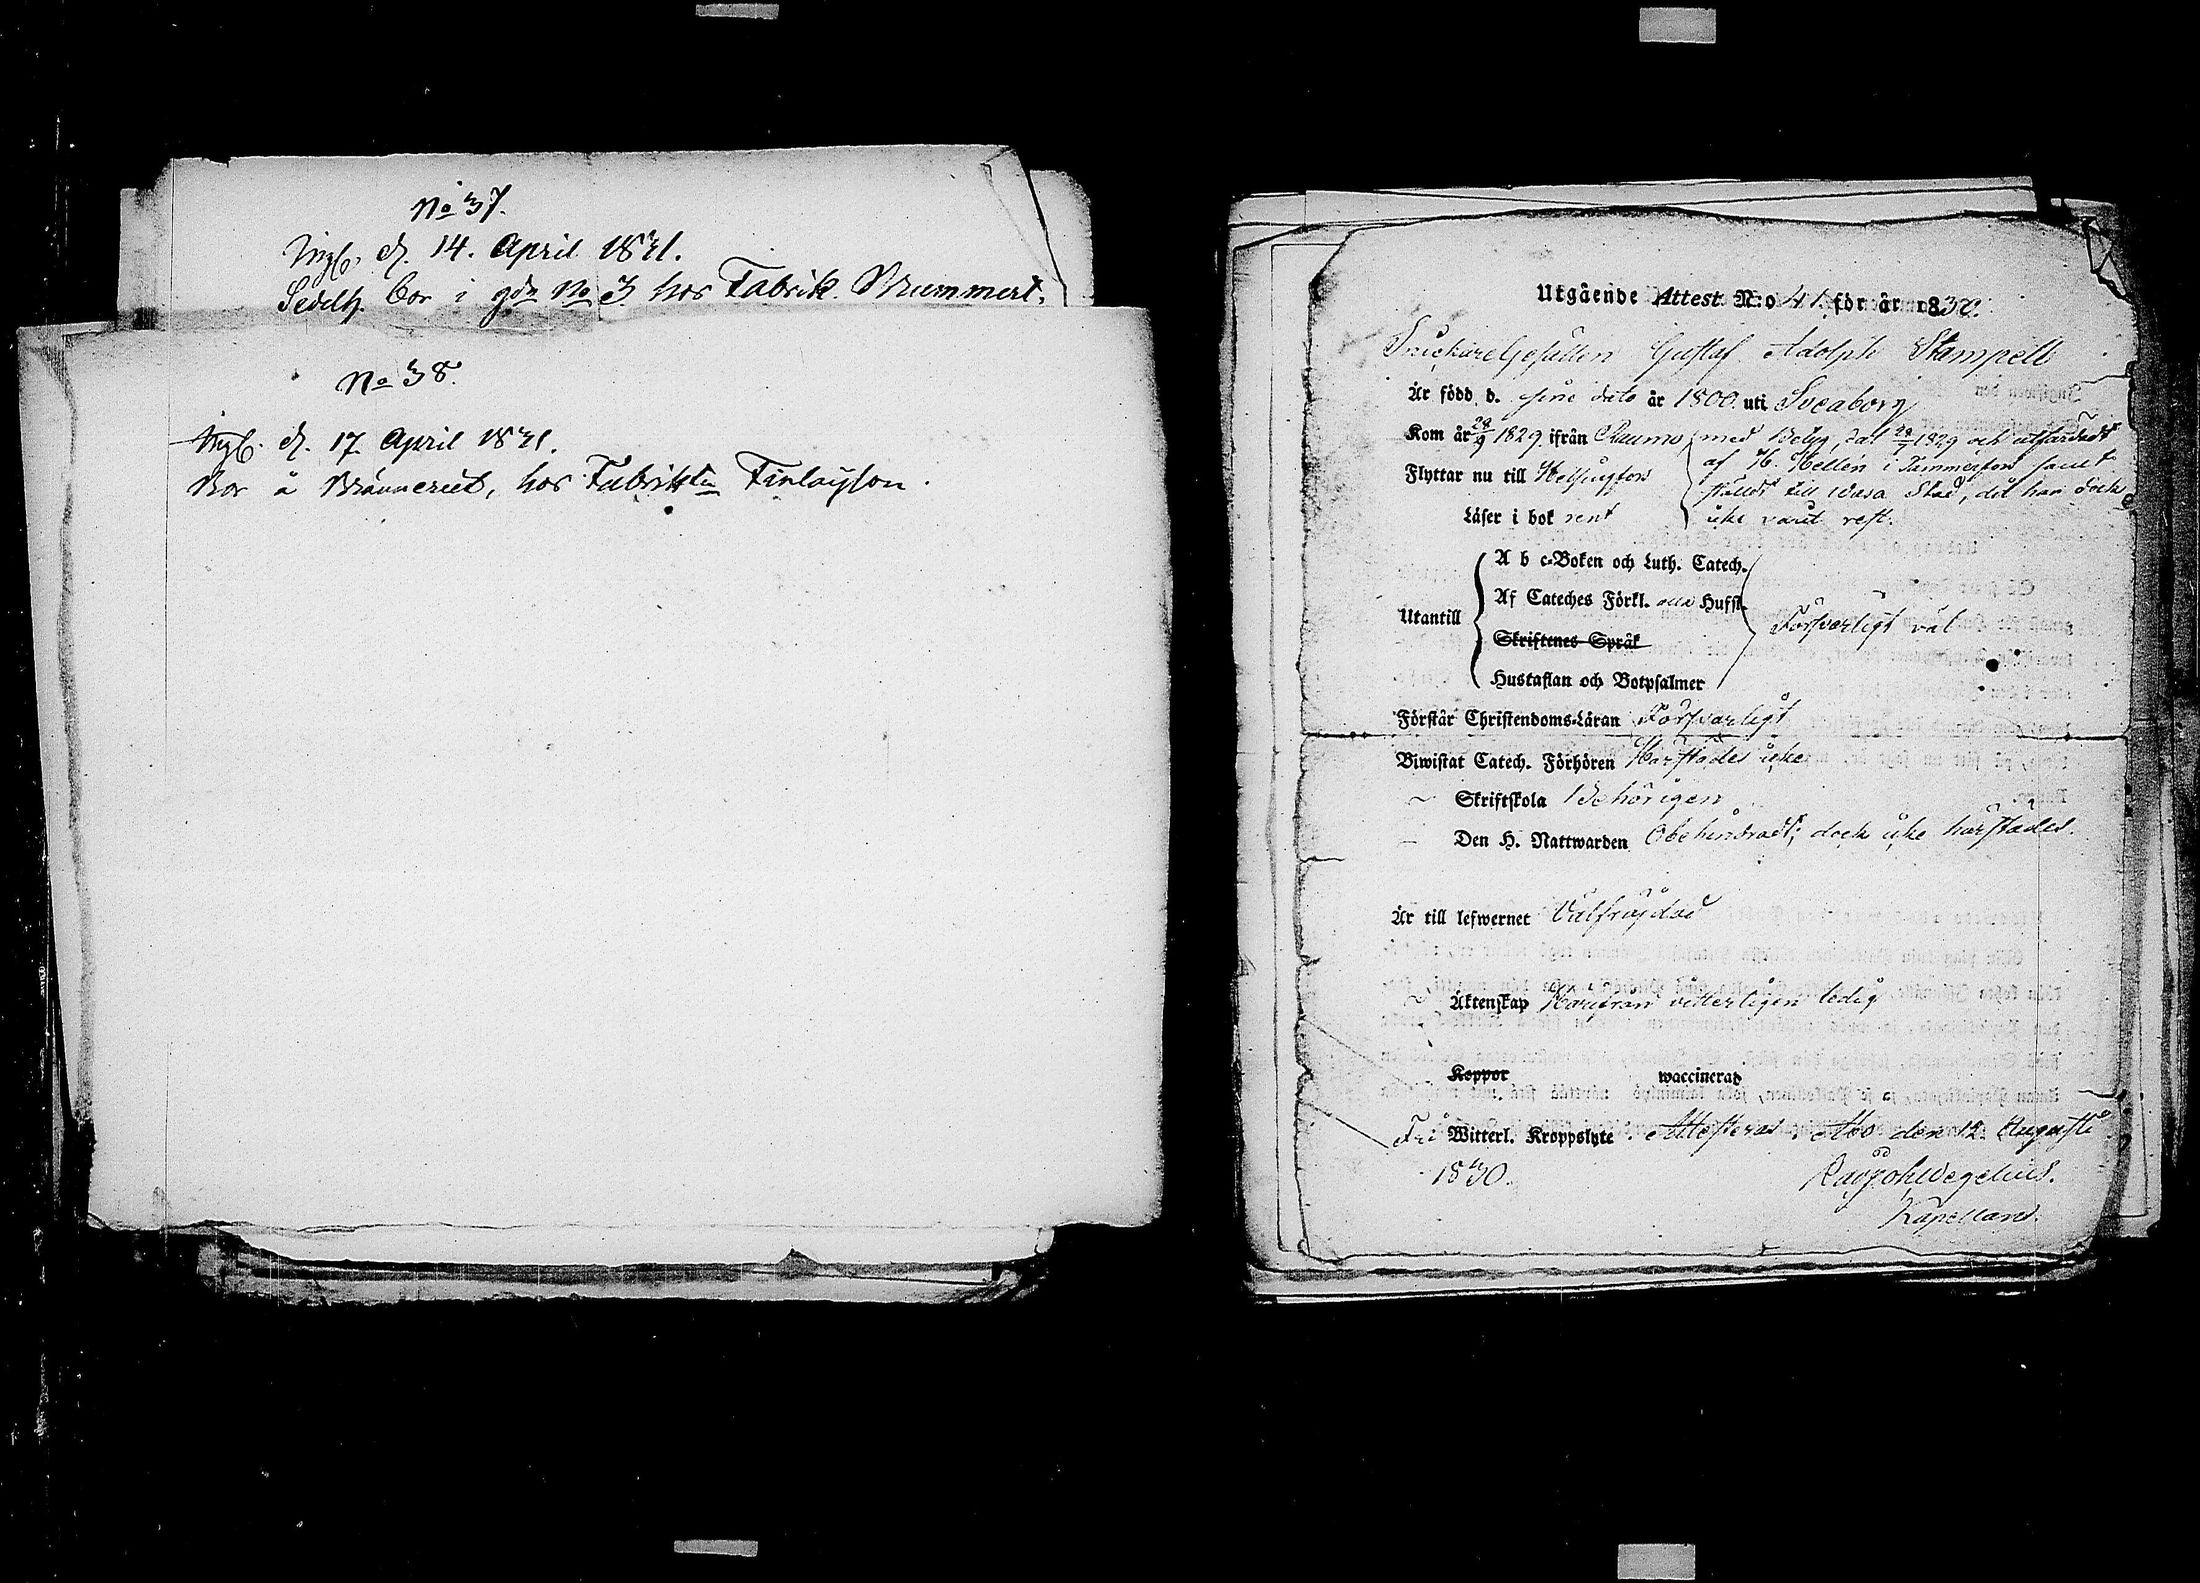 No 37.
Ingb. d. 14. April 1831.
Sedelh. bor i gdn No 3 hos Fabrik. Brummert.
No 38.
Ingb. d. 17 April 1831.
Bor å Bränneriet, hos Fabriktn Finlayson.
Utgående Attest N:o 41. för år 1830.
Snickare Gesällen Gustaf Adolph Stampell
Är född d. sine dato år 1800. uti Sveaborg
Kom år 28/9 1829 ifrån Raumo med Betyg dat 1829 och utfärdadt
af H. Hellén i Tammerfors samt
Flyttar nu till Helsingfors
stäldt till Wasa Stad, dit han dock
Läser i bok rent
icke varit rest.
A b c-Boken och Luth. Catech.
Af Cateches Förkl. Husfl.
Utantill
Försvarligt väl
Skriftenes Språk
Hustaflan och Botpsalmer
Förstår Christendoms-Läran Försvarligt
Biwistat Catech. Förhören Härstädes icke
~ Skriftskola Behörigen
— Den H. Nattwarden Obehindradt; dock icke härstädes.
Är till lefwernet Välfräjdad
~ Äktenskap Härifrån vetterligen ledig
Koppor waccinerad
Fri Witterl. Kroppslyte. Attesteras. Åbo den 12 Augusti
1830.
Wegelius.
Kapellan.